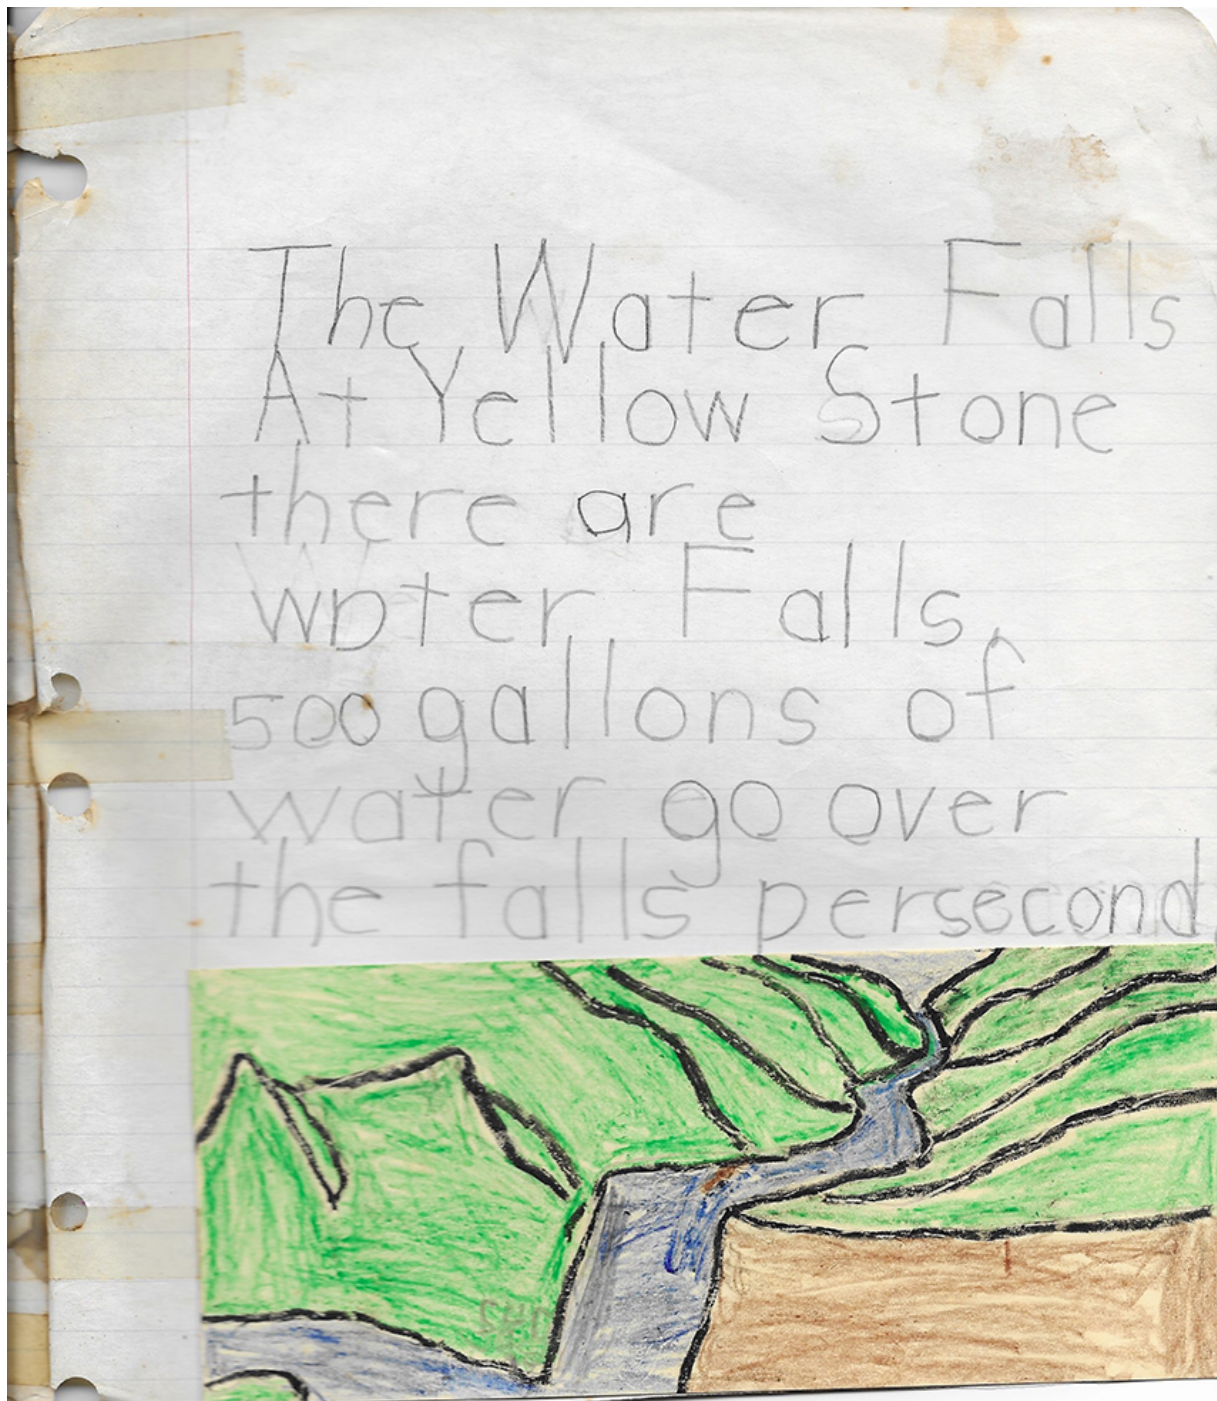 The Water Falls
At Yellow Stone
there are
water Falls.
500 gallons of
water go over
the falls persecond.